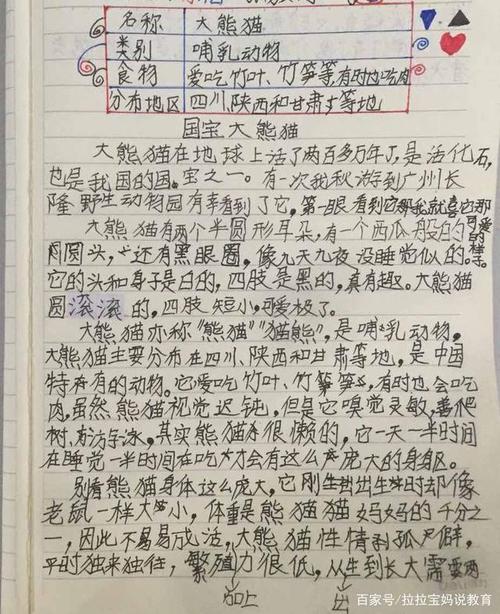 名称 大熊猫
类别 哺乳动物
食物 爱吃竹叶、竹笋等有时也吃肉
分布地区 四川、陕西和甘肃等地
国宝大熊猫
大熊猫在地球上活了两百多万年了,是活化石,
也是我国的国宝之一。有一次我秋游到广州长
隆野生动物园有幸看到了它,第一眼看到它那我就喜它那
可爱的样子。
大熊猫有两个半圆形耳朵,有一个西瓜般的
圆圆头,还有黑眼圈,像九天九夜没睡觉似的。
它的头和身子是白的,四肢是黑的,真有趣。大熊猫
圆滚滚的,四肢短小,可爱极了。
大熊猫亦称"熊猫""猫熊",是哺乳动物,
大熊猫主要分布在四川、陕西和甘肃等地,是中国
特有的动物。它爱吃竹叶、竹笋,有时也会吃
肉,虽然熊猫视觉迟钝,但是它嗅觉灵敏,善爬
树,有访泳,其实熊猫很懒的,它一天一半时间
在睡觉一半时间在吃才会有这么庞大的身躯。
别看熊猫身体这么庞大,它刚出生时却像
老鼠一样大小,体重是熊猫猫妈妈的千分之
一,因此不易成活,大熊猫性情孤僻,
平时独来独往,繁殖力很低,从生到长大需要
加上 出
百家号/拉拉宝妈说教育